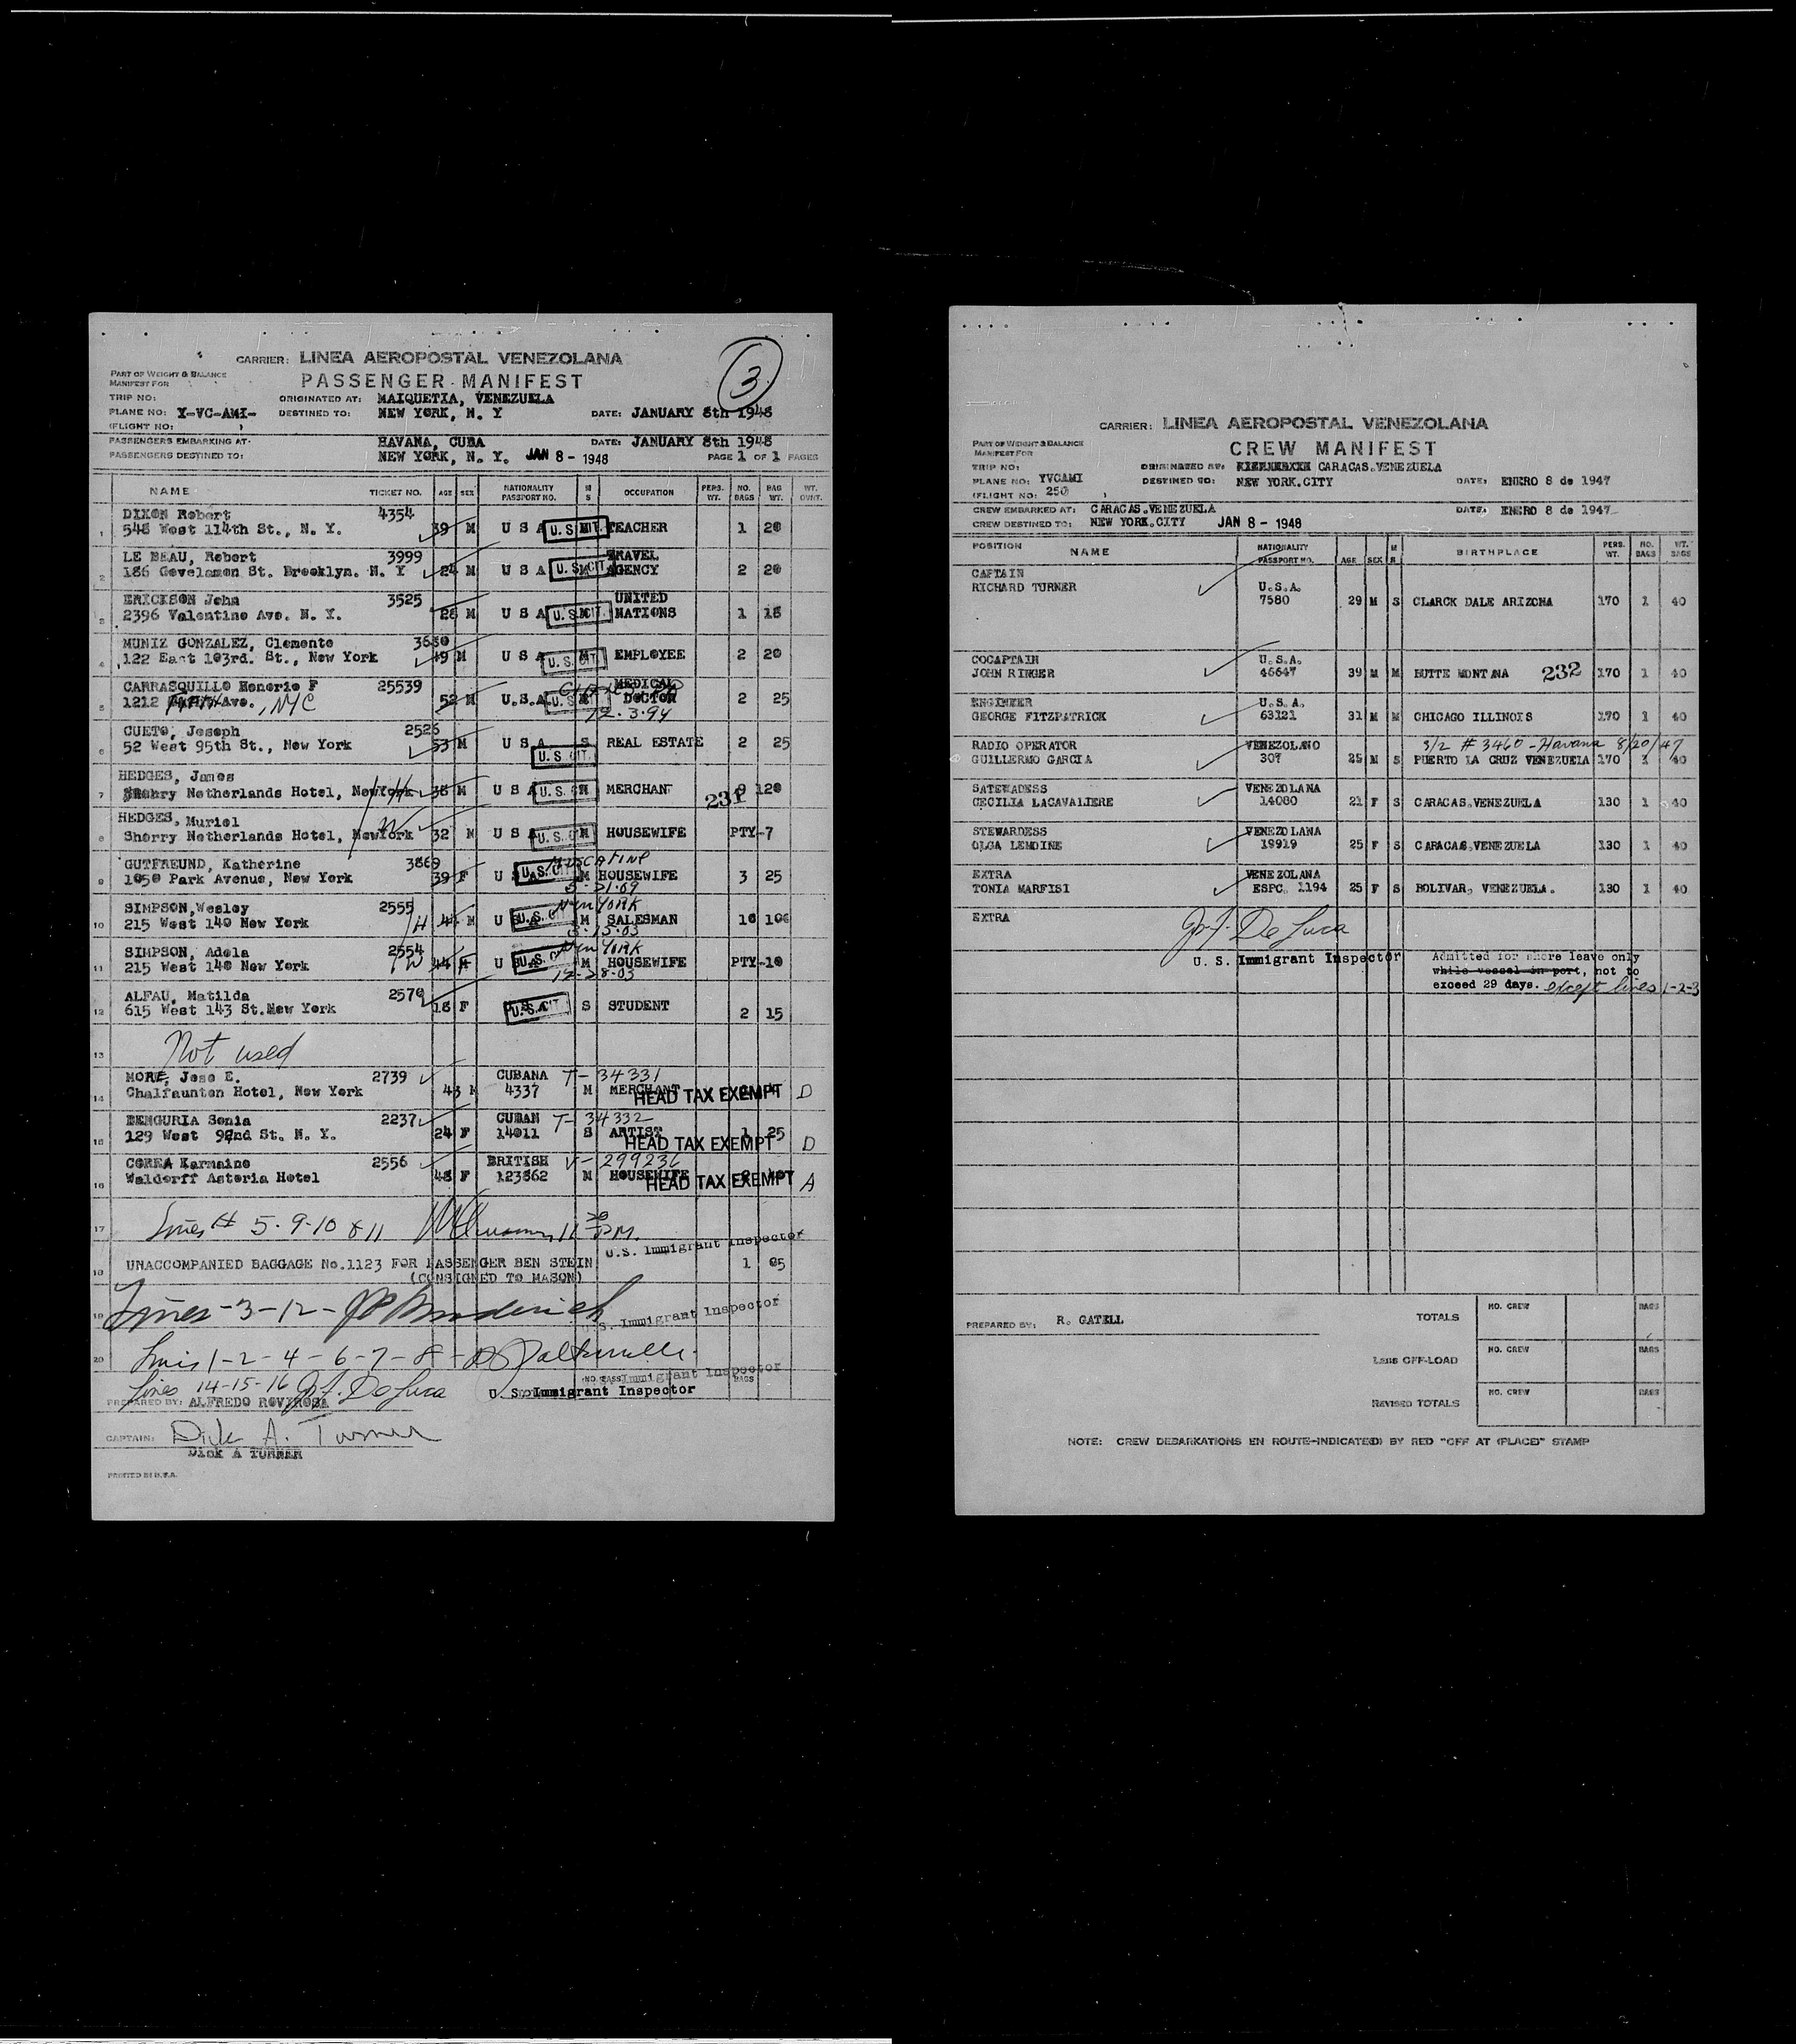 3
CARRIER: LINEA AEROPOSTAL VENEZOLANA
PART OF WEIGHT & BALANCE
MANIFEST FOR
PASSENGER MANIFEST
TRIP NO: ORIGINATED AT: MAIQUETIA, VENEZUELA
PLANE NO: Y-VC-AMI- DESTINED TO: NEW YORK, N. Y DATE: JANUARY 8th 1948
(FLIGHT NO: )
PASSENGERS EMBARKING AT: HAVANA, CUBA DATE: JANUARY 8th 1948
PASSENGERS DESTINED TO: NEW YORK, N. Y. JAN 8 - 1948 PAGE 1 OF 1 PAGES
NAME TICKET NO. AGE SEX NATIONALITY PASSPORT NO. M S OCCUPATION PERS. WT. NO. BAGS BAG WT. WT. OVNT.
DIXON Robert 4354
1 548 West 114th St., N. Y. 39 M U S A U.S. CIT. TEACHER 1 20
LE BEAU, Robert 3999 TRAVEL
2 186 Govelamen St. Brooklyn. N. Y 24 M U S A U.S. CIT. M AGENCY 2 20
ERICKSON John 3525 UNITED
3 2396 Valentine Ave. N. Y. 28 M U S A U.S. CIT. NATIONS 1 18
MUNIZ GONZALEZ, Clemente 3650
4 122 East 103rd. St., New York 49 M U S A U.S. CIT. EMPLOYEE 2 20
CARRASQUILLO Honorio F 25539 MEDICAL
5 1212 Ave., NYC 52 M U.S.A. U.S. CIT. DOCTOR 2 25
12.3.94
CUETO, Joseph 2526
6 52 West 95th St., New York 53 M U S A S REAL ESTATE 2 25
U.S. CIT.
HEDGES, James
7 Sherry Netherlands Hotel, NewYork H 38 M U S A U.S. CIT. M MERCHANT 231 9 120
HEDGES, Muriel
8 Sherry Netherlands Hotel, NewYork W 32 M U S A U.S. CIT. M HOUSEWIFE PTY-7
GUTFREUND, Katherine 3869 MUSCATINE
9 1050 Park Avenue, New York 39 F U.S. CIT. M HOUSEWIFE 3 25
5-21-09
SIMPSON,Wesley 2555 New York
10 215 West 140 New York H 44 M U.S. CIT. M SALESMAN 10 106
3-15-03
SIMPSON, Adela 2554 New York
11 215 West 140 New York W 44 F U.S. CIT. M HOUSEWIFE PTY-10
12-28-03
ALFAU, Matilda 2570
12 615 West 143 St.New York 18 F U.S. CIT. S STUDENT 2 15
13 Not used
MORE, Jose E. 2739 CUBANA T-34331
14 Chalfaunten Hotel, New York 43 M 4337 M MERCHANT HEAD TAX EXEMPT D
BENGURIA Sonia 2237 CUBAN T-34332
15 129 West 92nd St. N. Y. 24 F 14011 S ARTIST HEAD TAX EXEMPT 1 25 D
COREA Karmaine 2556 BRITISH V-299236
16 Waldorff Astoria Hotel 48 F 123862 M HOUSEWIFE HEAD TAX EXEMPT A
17 Lines # 5-9-10 & 11 11 30 P.M.
U.S. Immigrant Inspector
18 UNACCOMPANIED BAGGAGE No.1123 FOR PASSENGER BEN STEIN 1 65
(CONSIGNED TO MASON)
19 Lines-3-12- U.S. Immigrant Inspector
20 Lines 1-2-4-6-7-8-
Immigrant Inspector
Lines 14-15-16 J. F. De Luca U. S. Immigrant Inspector
PREPARED BY: ALFREDO ROVIROSA
CAPTAIN: Dick A. Turner
DICK A TURNER
PRINTED IN U.S.A.
CARRIER: LINEA AEROPOSTAL VENEZOLANA
PART OF WEIGHT & BALANCE
MANIFEST FOR
CREW MANIFEST
TRIP NO: ORIGINATED AT: CARACAS.VENEZUELA
PLANE NO: YVCAMI DESTINED TO: NEW YORK.CITY DATE: ENERO 8 de 1947
(FLIGHT NO: 250 )
CREW EMBARKED AT: CARACAS.VENEZUELA DATE: ENERO 8 de 1947
CREW DESTINED TO: NEW YORK.CITY JAN 8 - 1948
POSITION NAME NATIONALITY PASSPORT NO. AGE SEX M S BIRTHPLACE PERS. WT. NO. BAGS WT. BAGS
CAPTAIN
RICHARD TURNER U.S.A.
7580 29 M S CLARCK DALE ARIZONA 170 1 40
COCAPTAIN U.S.A.
JOHN RINGER 46647 39 M M BUTTE MONTANA 232 170 1 40
ENGINEER U.S.A.
GEORGE FITZPATRICK 63121 31 M M CHICAGO ILLINOIS 170 1 40
RADIO OPERATOR VENEZOLANO 3/2 # 3460 - Havana 8/20/47
GUILLERMO GARCIA 307 25 M S PUERTO LA CRUZ VENEZUELA 170 1 40
SATEWADESS VENEZOLANA
CECILIA LACAVALIERE 14080 21 F S CARACAS.VENEZUELA 130 1 40
STEWARDESS VENEZOLANA
OLGA LEMOINE 19919 25 F S CARACAS.VENEZUELA 130 1 40
EXTRA VENEZOLANA
TONIA MARFISI ESPC. 1194 25 F S BOLIVAR, VENEZUELA. 130 1 40
EXTRA
J. F. De Luca
U. S. Immigrant Inspector
Admitted for shore leave only
while vessel in port, not to
exceed 29 days. except lines 1-2-3
PREPARED BY: R. GATELL
TOTALS NO. CREW BAGS
LESS OFF-LOAD NO. CREW BAGS
REVISED TOTALS NO. CREW BAGS
NOTE: CREW DEBARKATIONS EN ROUTE-INDICATED BY RED "OFF AT (PLACE)" STAMP